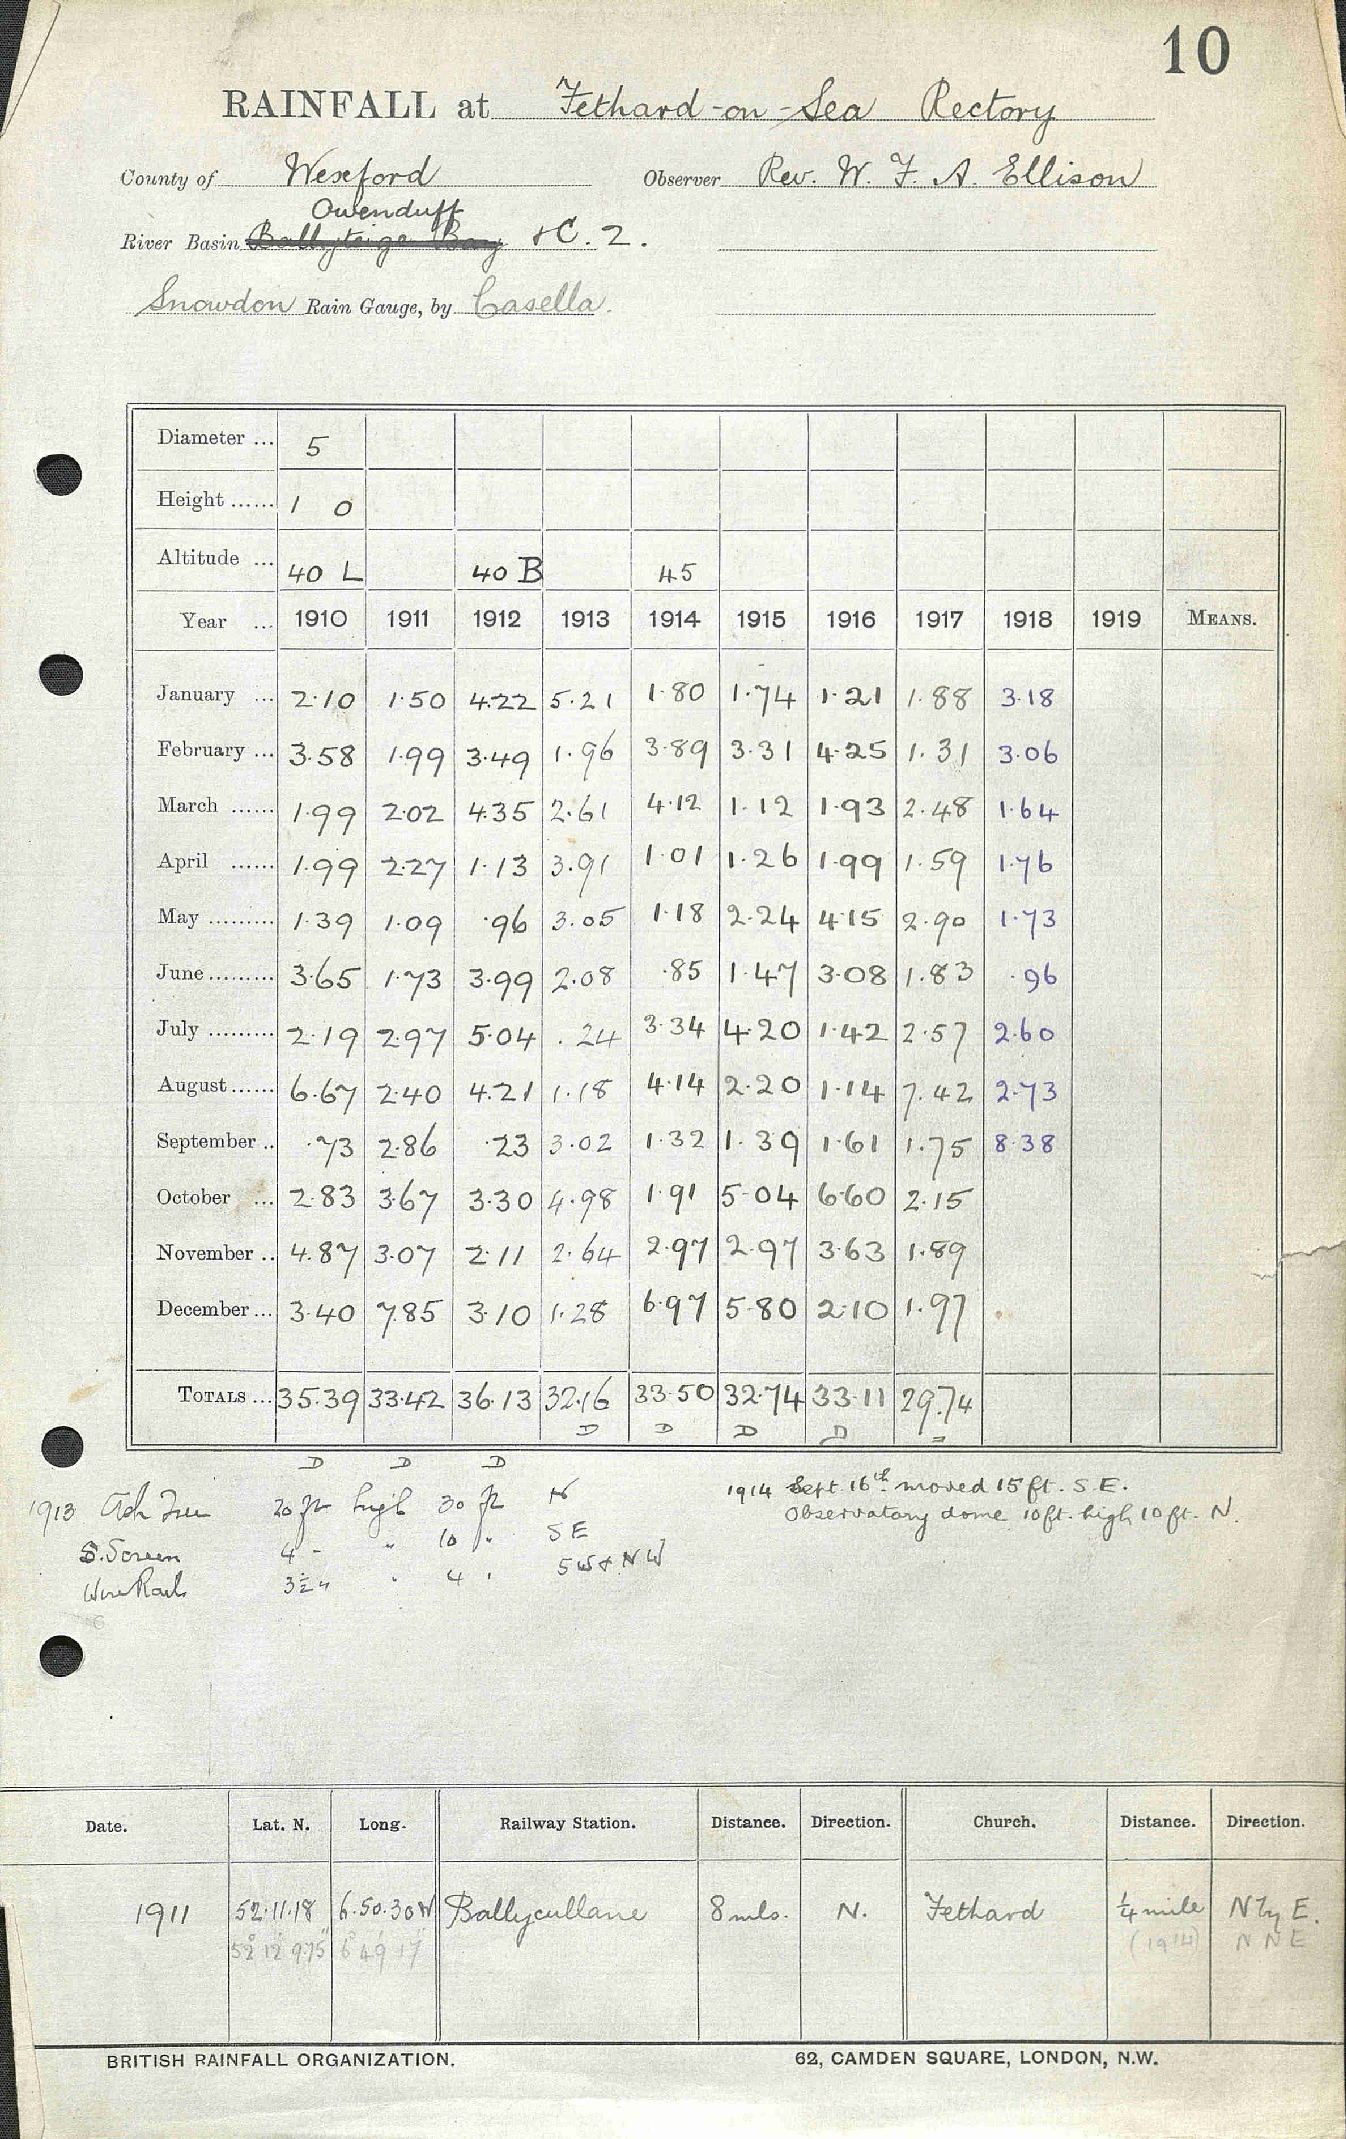 10
RAINFALL at Fethard-on-Sea Rectory
County of Wexford Observer Rev. W. F. A. Ellison
Owenduff
River Basin Ballyteige Bay + C. 2.
Snowdon Rain Gauge, by Casella.
Diameter ... 5
Height ...... 1 0
Altitude ... 40 L 40 B 45
Year ... 1910 1911 1912 1913 1914 1915 1916 1917 1918 1919 MEANS.
January ... 2.10 1.50 4.22 5.21 1.80 1.74 1.21 1.88 3.18
February ... 3.58 1.99 3.49 1.96 3.89 3.31 4.25 1.31 3.06
March ...... 1.99 2.02 4.35 2.61 4.12 1.12 1.93 2.48 1.64
April ...... 1.99 2.27 1.13 3.91 1.01 1.26 1.99 1.59 1.76
May ......... 1.39 1.09 .96 3.05 1.18 2.24 4.15 2.90 1.73
June ......... 3.65 1.73 3.99 2.08 .85 1.47 3.08 1.83 .96
July ......... 2.19 2.97 5.04 .24 3.34 4.20 1.42 2.57 2.60
August ...... 6.67 2.40 4.21 1.18 4.14 2.20 1.14 7.42 2.73
September .. .73 2.86 .23 3.02 1.32 1.39 1.61 1.75 8.38
October ... 2.83 3.67 3.30 4.98 1.91 5.04 6.60 2.15
November .. 4.87 3.07 2.11 2.64 2.97 2.97 3.63 1.89
December ... 3.40 7.85 3.10 1.28 6.97 5.80 2.10 1.97
TOTALS ... 35.39 33.42 36.13 32.16 33.50 32.74 33.11 29.74
D D D D
D D D
1913 Ash Tree 20 ft high 30 ft N
S. Screen 4 " " 10 " SE
Wire Rail 3½ " " 4 " SW & NW
1914 Sept. 16th moved 15 ft. S.E.
Observatory dome 10 ft. high 10 ft. N.
Date. Lat. N. Long. Railway Station. Distance. Direction. Church. Distance. Direction.
1911 52.11.18 6.50.30 W Ballycullane 8 mls. N. Fethard ¼ mile N by E.
52° 12' 9.75" 6 49 17 (1914) N N E
BRITISH RAINFALL ORGANIZATION. 62, CAMDEN SQUARE, LONDON, N.W.